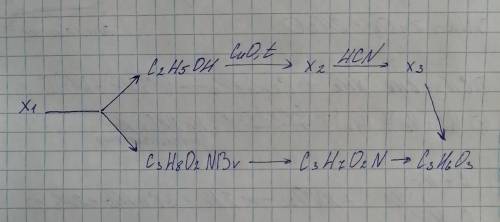 C2H5OH CuO,t X2 HCN X3
X1
C3H8O2NBr C3H7O2N C3H6O3